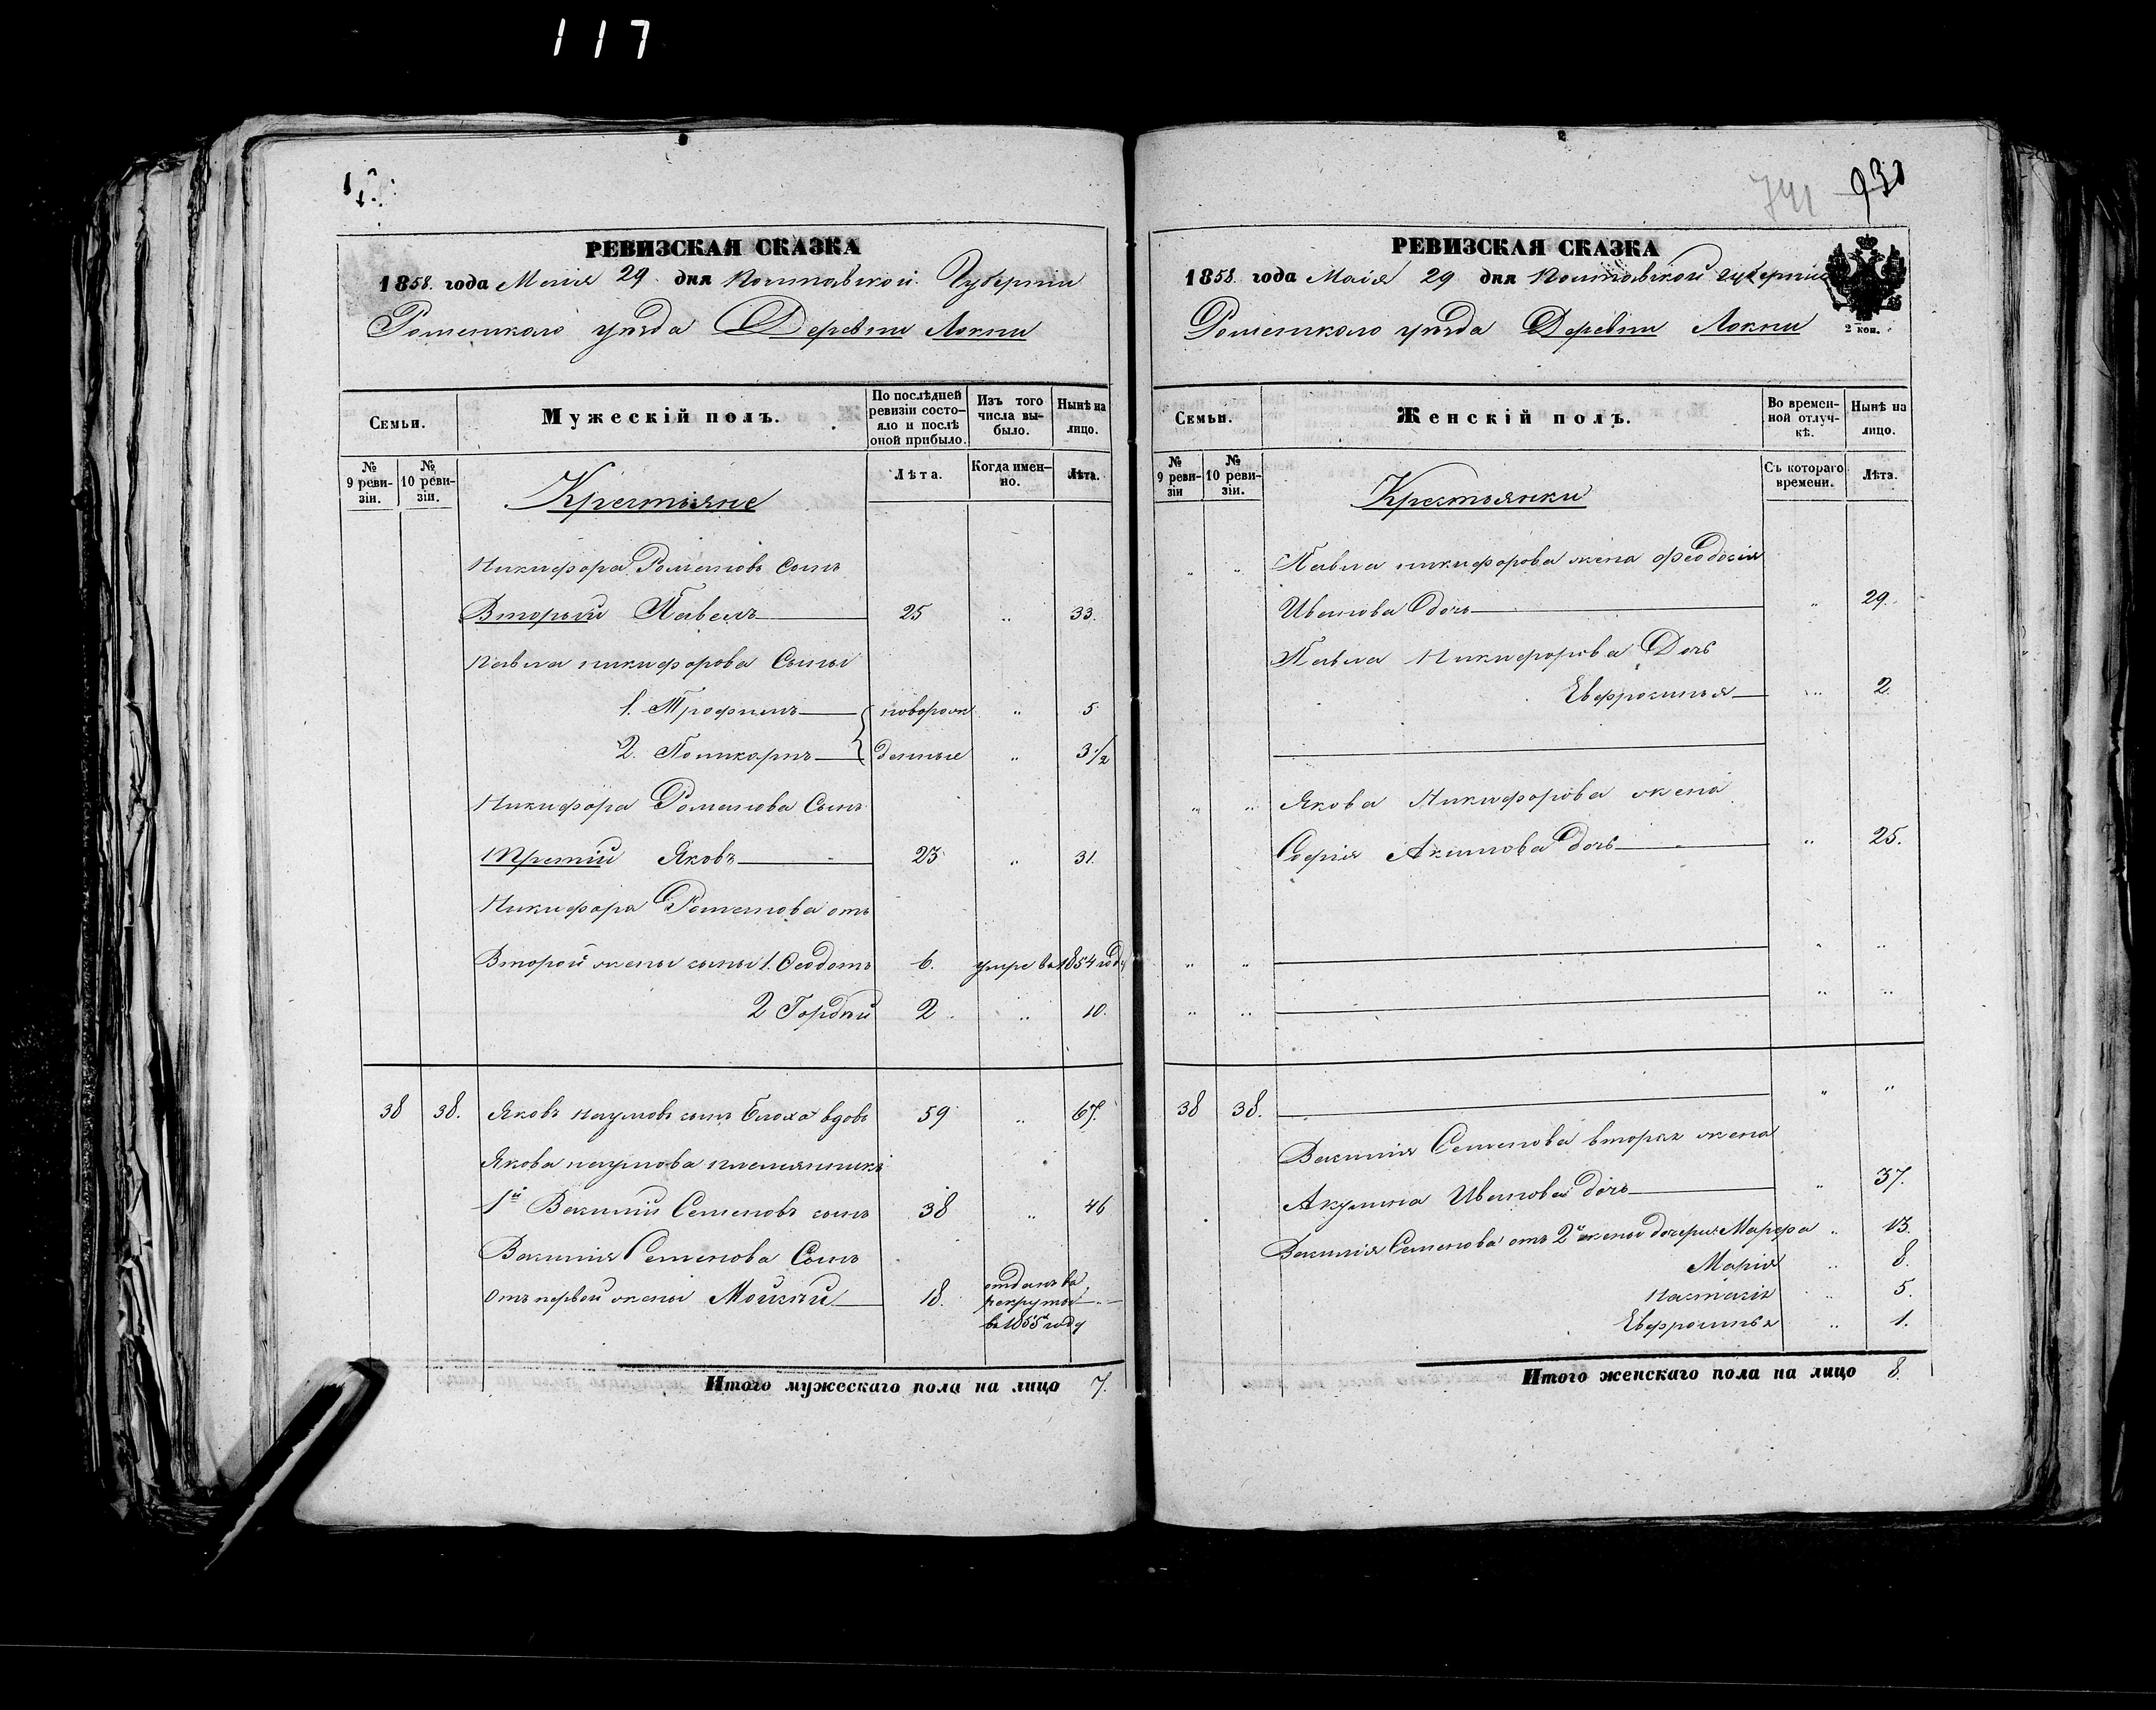 117
РЕВИЗСКАЯ СКАЗКА
1858. года Маія 29 дня Полтавской Губерніи
Роменскаго уѣзда Деревни Локни
Семьи.
Мужескій полъ.
По послѣдней ревизіи состо-
яло и послѣ оной прибыло.
Изъ того числа вы-
было.
Нынѣ на лицо.
№ 9 реви-
зіи.
№ 10 реви-
зіи.
Крестьяне
Лѣта.
Когда имен-
но.
Лѣта.
Никифора Романовъ сынъ
Вторый Павелъ 25 „ 33.
Павла никифорова Сыны
1. Трофимъ новорож „ 5
2. Поликарпъ денные „ 3 1/2
Никифора Романова Сынъ
Третій Яковъ 23 „ 31.
Никифора Романова отъ
Второй жены сыны 1. Феодотъ 6. умре въ 1854 году
2 Гордѣй 2 „ 10.
38 38. Яковъ наумовъ сынъ Блоха вдовъ 59 „ 67.
Якова наумова племянники
1й Василій Семеновъ сынъ 38 „ 46
Василія Семенова Сынъ
Отъ первой жены Моисей 18. отданъ въ
рекруты
въ 1855 году
Итого мужескаго пола на лицо 7.
741 930
РЕВИЗСКАЯ СКАЗКА
1858. года Маія 29 дня Полтавской губерніи
Роменскаго уѣзда Деревни Локни
2 коп.
Семьи.
Женскій полъ.
Во времен-
ной отлуч-
кѣ.
Нынѣ на лицо.
№ 9 реви-
зіи
№ 10 реви-
зіи.
Крестьянки
Съ котораго времени.
Лѣта.
„ „ Павла никифорова жена Феодосія
Иванова дочь „ 29.
Павла Никифорова Дочь
Евфросинья „ 2.
„ „ Якова Никифорова жена
Софія Акимова дочь „ 25.
„ „ „ „
„ „ „ „
38 38. „ „
Василія Семенова вторая жена
Акулина Иванова дочь „ 37.
Василія Семенова отъ 2й жены дочери: Марфа „ 13.
Марія „ 8.
Настасія „ 5.
Евфросинья „ 1.
Итого женскаго пола на лицо 8.